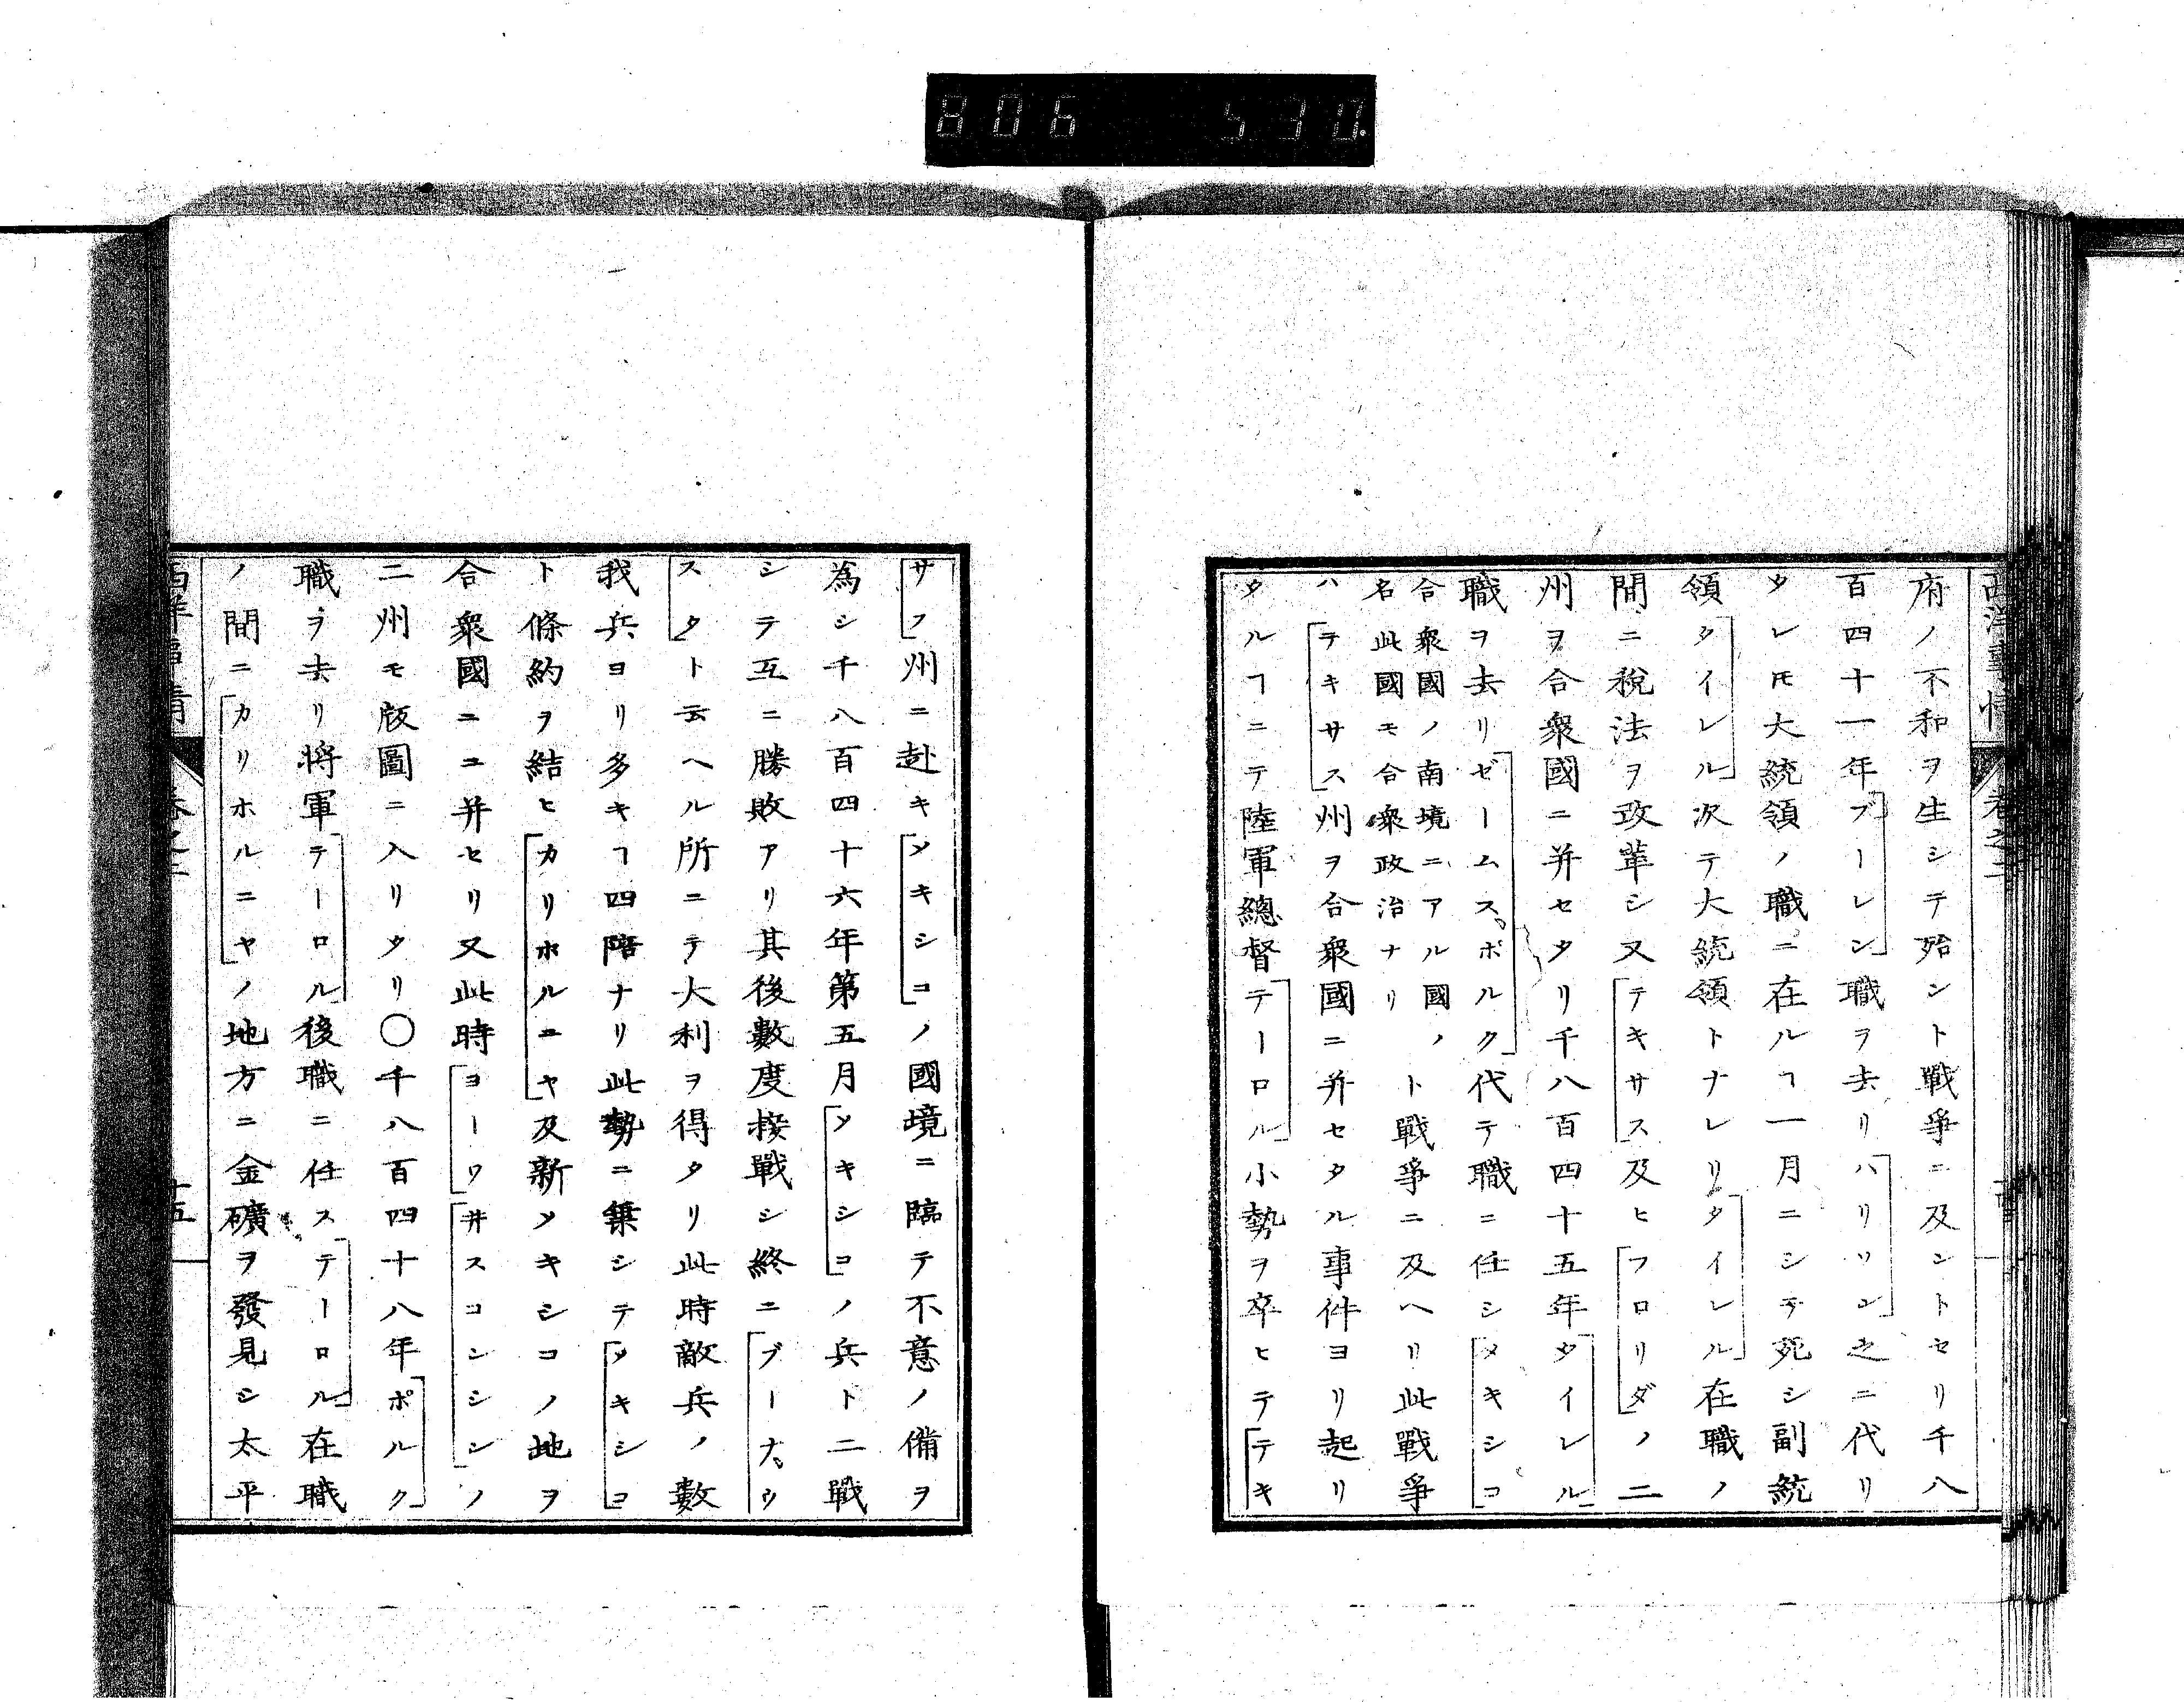 806 530.
西洋事情 卷之二
府ノ不和ヲ生シテ殆ント戰爭ニ及ントセリ千八
百四十一年「ブーレン」職ヲ去リ「ハリソン」之ニ代リ
タレ𪜈大統領ノ職ニ在ルヿ一月ニシテ死シ副統
領「タイレル」次テ大統領トナレリ「タイレル」在職ノ
間ニ稅法ヲ改革シ又「テキサス」及ヒ「フロリダ」ノ二
州ヲ合衆國ニ并セタリ千八百四十五年「タイレル」
職ヲ去リ「ゼームス、ポルク」代テ職ニ任シ「メキシコ」
合衆國ノ南境ニアル國ノ
名此國モ合衆政治ナリ
ト戰爭ニ及ヘリ此戰爭
ハ「テキサス」州ヲ合衆國ニ并セタル事件ヨリ起リ
タルヿニテ陸軍總督「テーロル」小勢ヲ卒ヒテ「テキ
サス」州ニ赴キ「メキシコ」ノ國境ニ臨テ不意ノ備ヲ
為シ千八百四十六年第五月「メキシコ」ノ兵ト二戰
シテ互ニ勝敗アリ其後數度接戰シ終ニ「ブーナ、ウ
スタ」ト云ヘル所ニテ大利ヲ得タリ此時敵兵ノ數
我兵ヨリ多キヿ四陪ナリ此勢ニ乘シテ「メキシコ」
ト條約ヲ結ヒ「カリホルニヤ」及新メキシコノ地ヲ
合衆國ニ并セリ又此時「ヨーワ」「井スコンシン」ノ
二州モ版圖ニ入リタリ〇千八百四十八年「ポルク」
職ヲ去リ將軍「テーロル」後職ニ任ス「テーロル」在職
ノ間ニ「カリホルニヤ」ノ地方ニ金礦ヲ發見シ太平
西洋事情 卷之二 十五